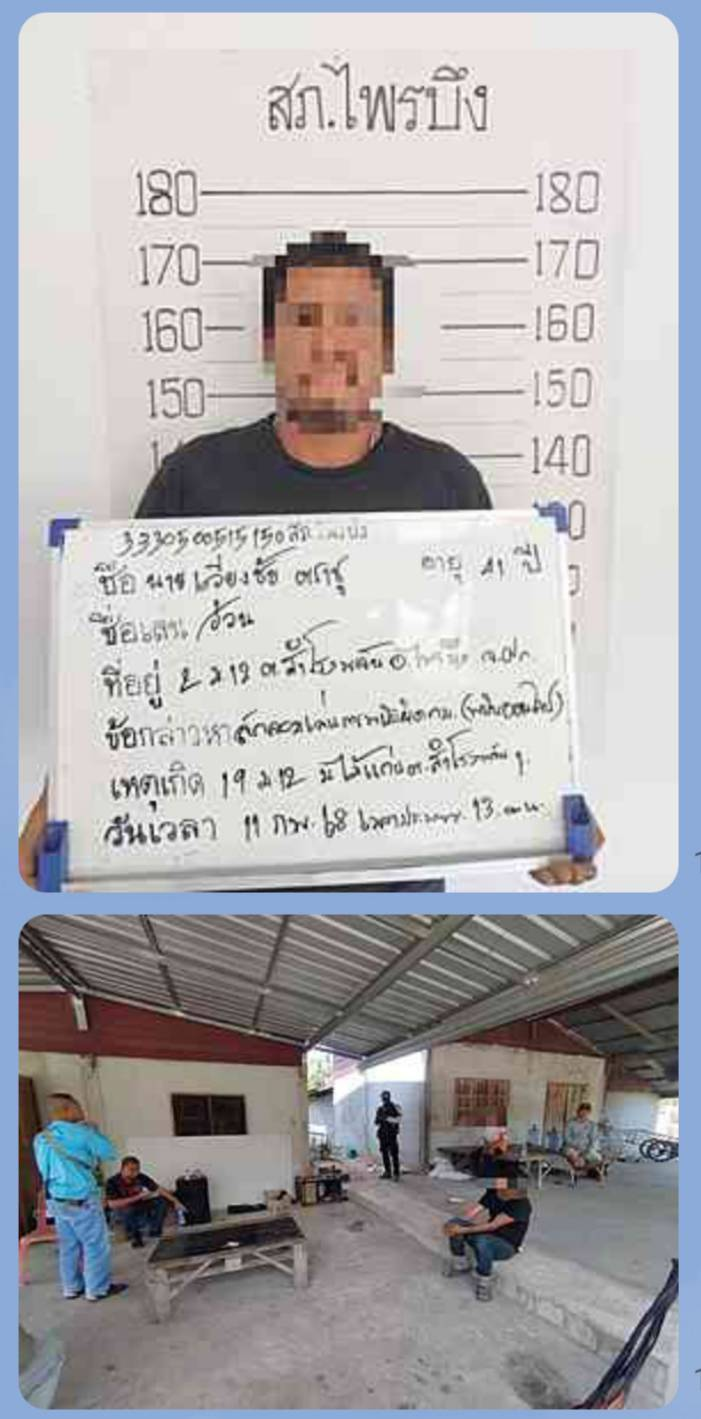 สภ.ไพรบึง
180 180
170 170
160 160
150 150
140
3330500515150
ชื่อ นาย เวียงชัย อายุ 41 ปี
ชื่อเล่น อ้วน
ที่อยู่ 2 ม 12 ต.สำโรงพลัน อ.ไพรบึง จ.ศก.
ข้อกล่าวหา ลักลอบเล่นการพนัน (พนันออนไลน์)
เหตุเกิด 19 ม 12 ต.สำโรงพลัน ฯ
วันเวลา 11 กพ. 68 เวลาประมาณ 13. น.